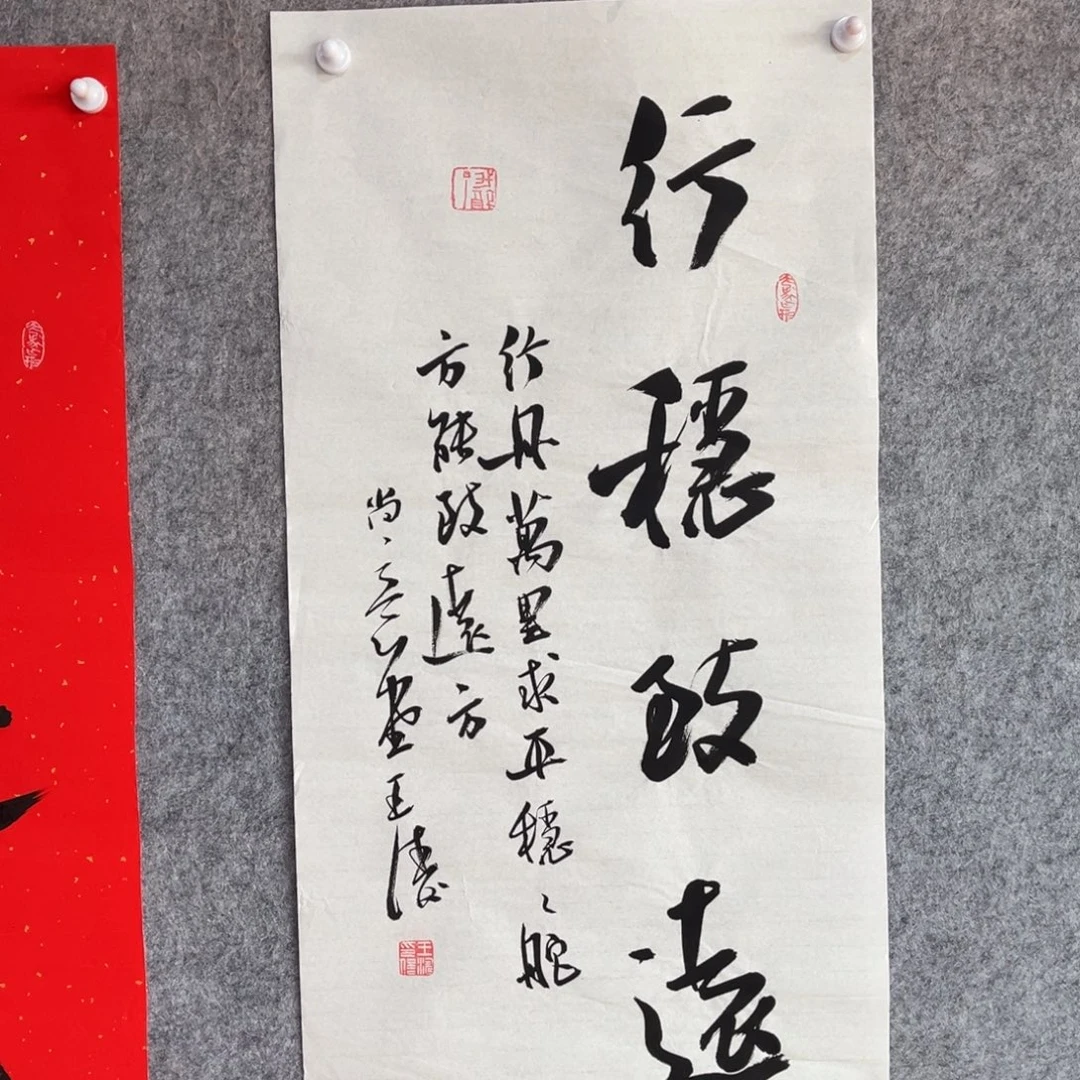 行穩致遠
行舟萬里求平穩穩舵
方能致遠方
尚
王濤